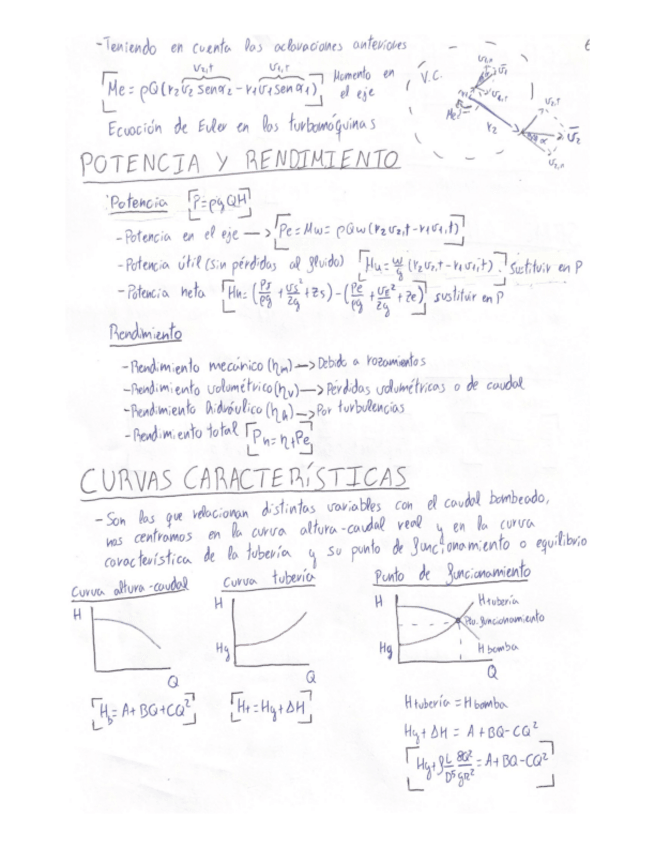 - Teniendo en cuenta las aclaraciones anteriores
v₂,t v₁,t
Me = ρQ(r₂v₂ senα₂ - r₁v₁ senα₁) Momento en el eje
Ecuación de Euler en las turbomáquinas
V.C.
r₂
POTENCIA Y RENDIMIENTO
Potencia P=ρgQH
- Potencia en el eje → Pe = Mw = ρQw(r₂v₂,t - r₁v₁,t)
- Potencia útil (sin pérdidas al fluido) Hu = w/g (r₂v₂,t - r₁v₁,t). Sustituir en P
- Potencia neta Hn = (Ps/ρg + vs²/2g + zs) - (Pe/ρg + ve²/2g + ze) sustituir en P
Rendimiento
- Rendimiento mecánico (ηm) → Debido a rozamientos
- Rendimiento volumétrico (ηv) → Pérdidas volumétricas o de caudal
- Rendimiento hidráulico (ηh) → Por turbulencias
- Rendimiento total Pn = ηtPe
CURVAS CARACTERÍSTICAS
- Son las que relacionan distintas variables con el caudal bombeado,
nos centramos en la curva altura-caudal real y en la curva
característica de la tubería y su punto de funcionamiento o equilibrio
Curva altura-caudal
H
Q
Hb = A + BQ + CQ²
Curva tubería
H
Hg
Q
Ht = Hg + ΔH
Punto de funcionamiento
H
Hg
H tubería
Pto. funcionamiento
H bomba
Q
H tubería = H bomba
Hg + ΔH = A + BQ - CQ²
Hg + f L/D⁵ 8Q²/gπ² = A + BQ - CQ²